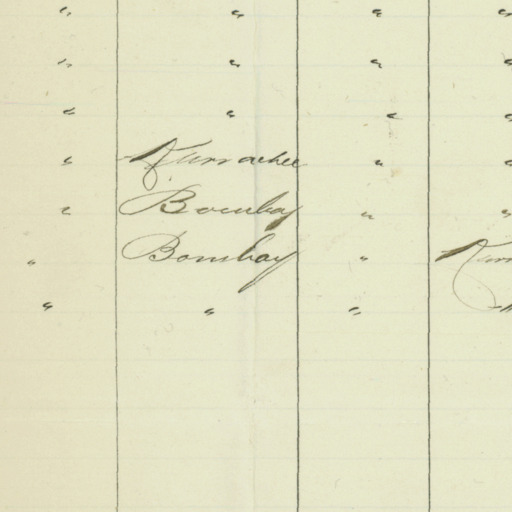 " " " "
" " " "
" " " "
" Kurrachee " "
" Bombay " "
" Bombay "
" " "